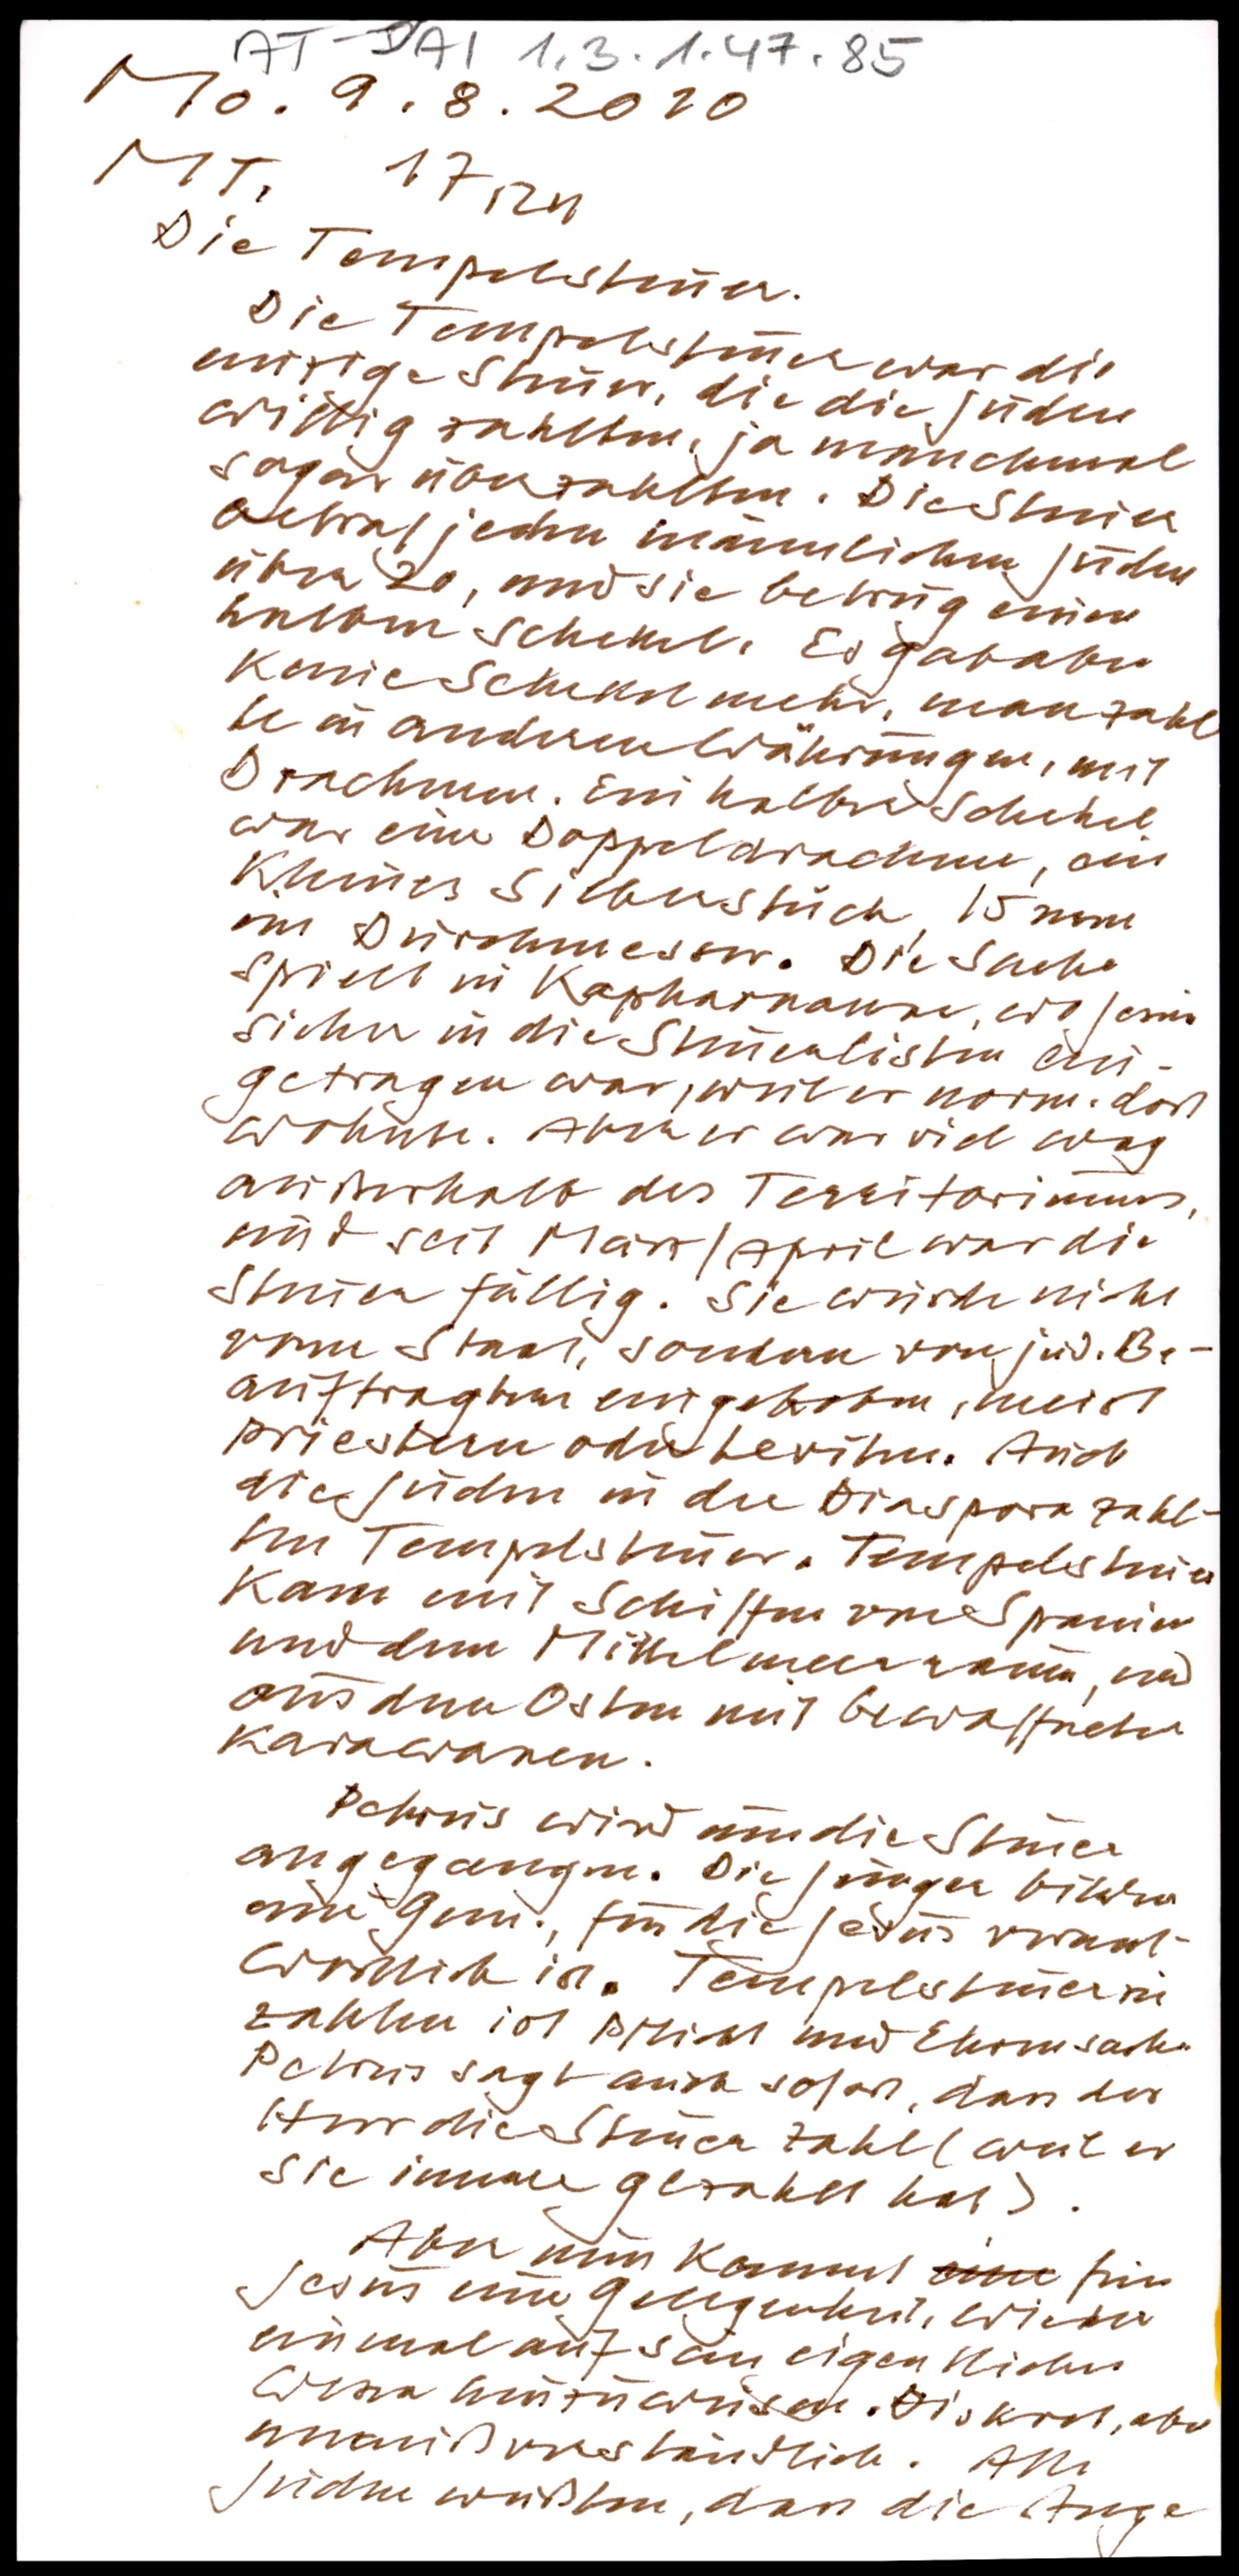 AT-DAI 1.3.1.47.85
Mo. 9.8.2010
MT. 17,24
Die Tempelsteuer.
Die Tempelsteuer war die
einzige Steuer, die die Juden
willig zahlten, ja manchmal
sogar überzahlten. Die Steuer
betraf jeden männlichen Juden
über 20, und sie betrug einen
halben Schekel. Es gab aber
keine Schekel mehr, man zahl
te in anderen Währungen, mit
Drachmen. Ein halber Schekel
war eine Doppeldrachme, ein
kleines Silberstück, 15 mm
im Durchmesser. Die Sache
spielt in Kapharnaum, wo Jesus
sicher in die Steuerlisten ein-
getragen war, weil er norm. dort
wohnte. Aber er war viel weg
außerhalb des Territoriums,
und seit März/April war die
Steuer fällig. Sie wurde nicht
vom Staat, sondern von jüd. Be-
auftragten eingehoben, meist
Priestern oder Leviten. Auch
die Juden in der Diaspora zahl-
ten Tempelsteuer. Tempelsteuer
kam mit Schiffen von Spanien
und dem Mittelmeerraum, und
aus dem Osten mit bewaffneten
Karawanen.
Petrus wird um die Steuer
angegangen. Die Jünger bilden
eine Gem., für die Jesus verant-
wortlich ist. Tempelsteuer zu
zahlen ist Pflicht und Ehrensache.
Petrus sagt auch sofort, dass der
Herr die Steuer zahlt (weil er
sie immer gezahlt hat).
Aber nun kommt eine für
Jesus eine Gelegenheit, wieder
einmal auf sein eigentliches
Wesen hinzuweisen. Diskret, aber
unmißverständlich. Alle
Juden wußten, dass die Ange